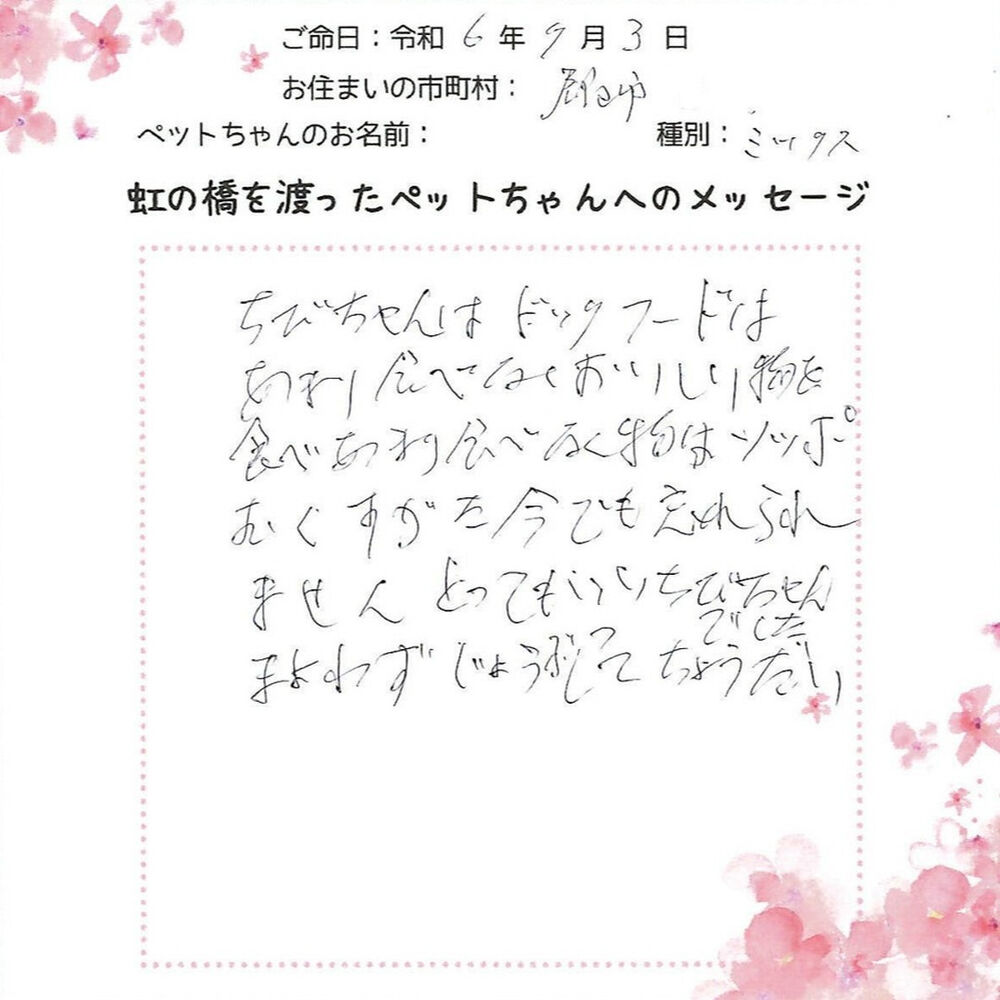 ご命日：令和 6 年 9 月 3 日
お住まいの市町村： 郡山市
ペットちゃんのお名前： 種別： ミックス
虹の橋を渡ったペットちゃんへのメッセージ
ちびちゃんは ドックフードは
あまり食べなくおいしい物を
食べあまり食べなく物はソッポ
むくすがた今でも忘れられ
ません とってもいいちびちゃん
でした
まよわずじょうぶつしてちょうだい